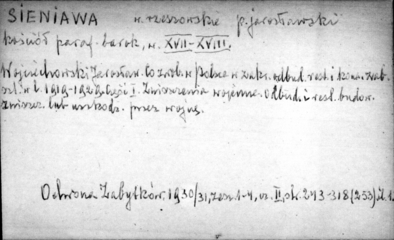 SIENIAWA w. rzeszowskie p. jarosławski
kościół paraf. barok, w. XVII-XVIII.
Wojciechowski Jarosław. Co zrob. w Polsce w zakr. odbud. rest. i kons. zab.
szt. w l. 1919-1929. Część I. Zniszczenia wojenne. Odbud. i rest. budow.
zniszcz. lub uszkodz. przez wojnę.
Ochrona Zabytków, 1930/31, zesz. 1-4, cz. II, str. 243-318 (253), il. 1.